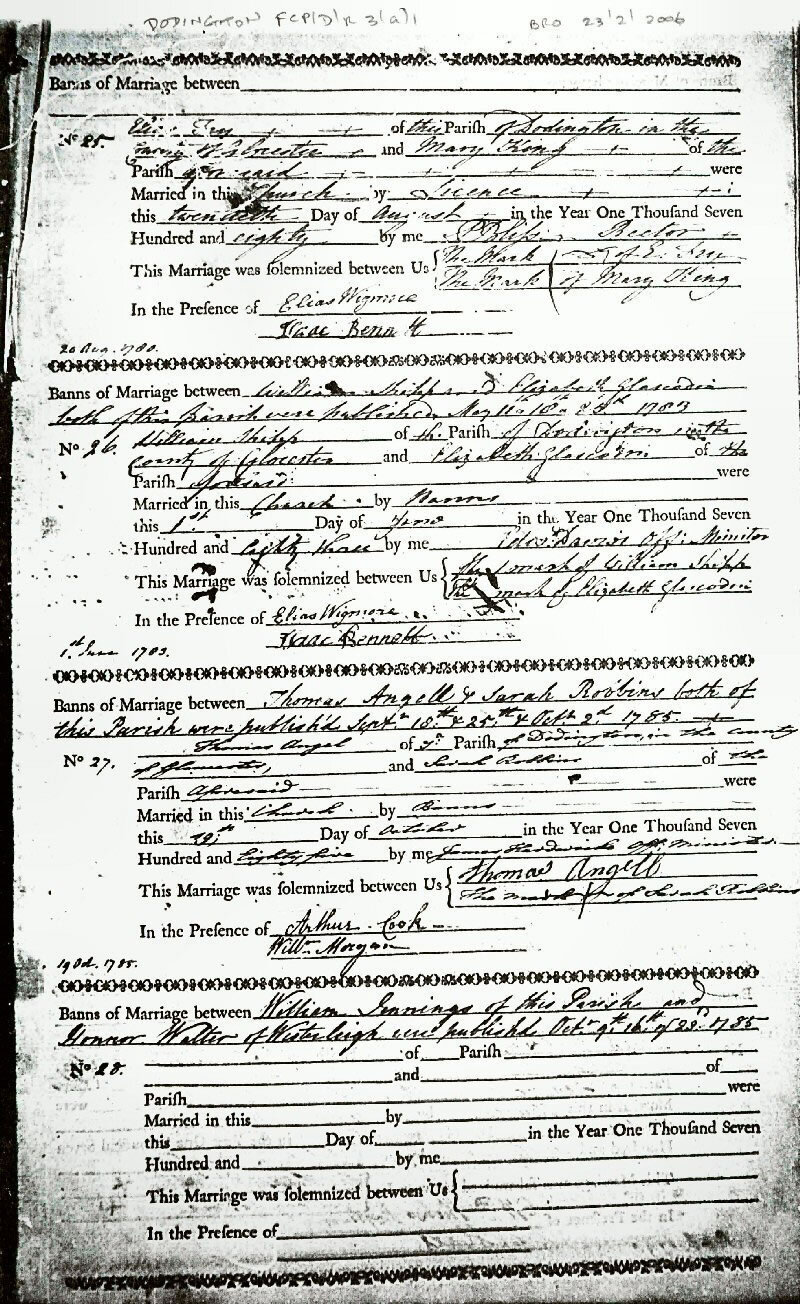 DODINGTON FCP/D/R 3(a)1 BRO 23/2/2006
Banns of Marriage between
No 25. of this Parish of Dodington in the
and Mary King of the
Parish were
Married in this Church by Licence
this twentieth Day of August in the Year One Thousand Seven
Hundred and eighty by me Rector
This Marriage was solemnized between Us The Mark of
The Mark of Mary King
In the Presence of Elias Wigmore
Isaac Bennett
20 Aug. 1780.
Banns of Marriage between William Shipp and Elizabeth Glascodin
both of this Parish were published May 11th 18th 1783
No 26. William Shipp of the Parish of Dodington in the
County of Glocester and Elizabeth Glascodin of the
Parish aforesaid were
Married in this Church by Banns
this 1st Day of June in the Year One Thousand Seven
Hundred and Eighty three by me Offg. Minister
This Marriage was solemnized between Us The mark of William Shipp
The mark of Elizabeth Glascodin
In the Presence of Elias Wigmore
Isaac Bennett
1st June 1783.
Banns of Marriage between Thomas Angell & Sarah Robbins both of
this Parish were publish'd Septr. 18th & 25th & Octr. 2d 1785.
No 27. Thomas Angel of ye Parish of Dodington, in the County
of Glocester, and Sarah Robbins of the
Parish Aforesaid were
Married in this Church by Banns
this 19th Day of October in the Year One Thousand Seven
Hundred and Eighty five by me James Hardwicke Offg. Minister
This Marriage was solemnized between Us Thomas Angell
The mark of Sarah Robbins
In the Presence of Arthur Cook
Willm. Morgan
19 Od. 1785.
Banns of Marriage between William Jennings of this Parish and
Honnor Walter of Westerleigh were publishd Octr. 9th 16th 23d. 1785
No 28. of Parish
and of
Parish were
Married in this by
this Day of in the Year One Thousand Seven
Hundred and by me
This Marriage was solemnized between Us
In the Presence of